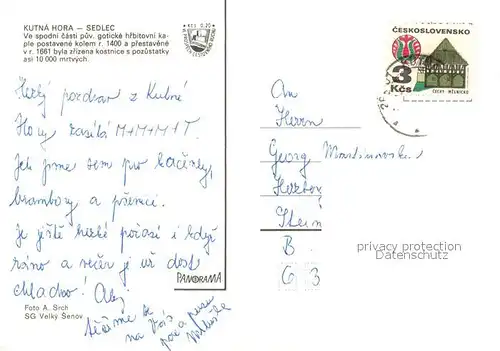 KUTNÁ HORA — SEDLEC
Ve spodní části pův. gotické hřbitovní ka-
ple postavené kolem r. 1400 a přestavěné
v r. 1661 byla zřízena kostnice s pozůstatky
asi 10 000 mrtvých.
Kčs 0,20
Hezký pozdrav z Kutné
Hory zasílá M+M+M+T.
Jeli jsme sem pro kačenky,
brambory a pšenici.
Je ještě hezké počasí i když
ráno a večer je už dost
chladno! Ahoj
těšíme se
na Vás
PANORAMA
Foto A. Srch
SG Velký Šenov
ČESKOSLOVENSKO
3
Kčs
ČECHY - MĚLNICKO
An
Herrn
Georg
Stein
B.
6 3
privacy protection
Datenschutz